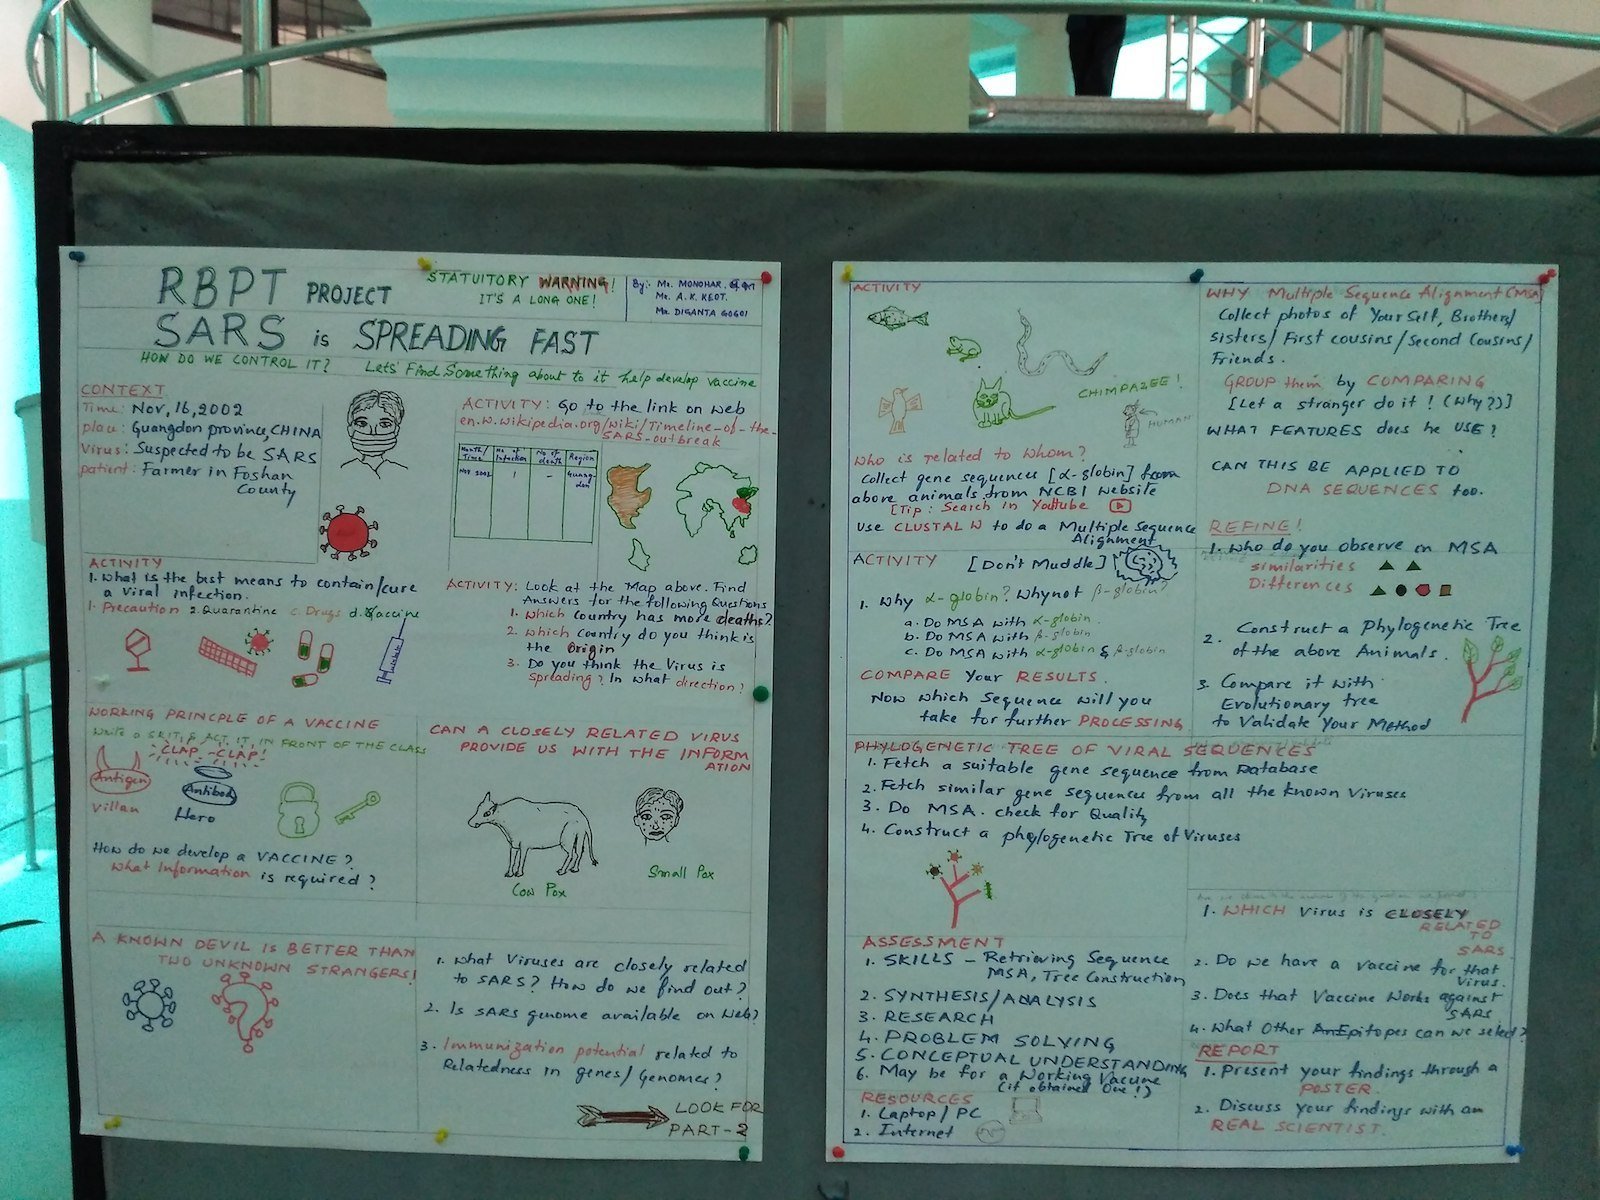 RBPT PROJECT
STATUITORY WARNING!
IT'S A LONG ONE!
By:- Mr. MONOHAR.
Mr. A. K. KEOT.
Mr. DIGANTA GOGOI
SARS is SPREADING FAST
HOW DO WE CONTROL IT? Lets' Find Something about to it help develop vaccine
CONTEXT
Time: Nov, 16, 2002
place: Guangdon province, CHINA
Virus: Suspected to be SARS
patient: Farmer in Foshan
County
ACTIVITY: Go to the link on web
en.w.wikipedia.org/wiki/Timeline-of-the-
SARS-outbreak
Month/Time No. of Infection No. of death Region
Nov 2002 1 - Guangdon
ACTIVITY
1. What is the best means to contain/cure
a Viral infection.
1. Precaution 2. Quarantine c. Drugs d. Vaccine
ACTIVITY: Look at the Map above. Find
Answers for the following Questions
1. Which country has more deaths?
2. Which country do you think is
the Origin
3. Do you think the Virus is
spreading? In what direction?
WORKING PRINCPLE OF A VACCINE
Write a SKIT & ACT IT, IN FRONT OF THE CLASS
CLAP CLAP!
Antigen
Villan
Antibody
Hero
How do we develop a VACCINE?
What Information is required?
CAN A CLOSELY RELATED VIRUS
PROVIDE US WITH THE INFORM
ATION
Cow Pox
Small Pox
A KNOWN DEVIL IS BETTER THAN
TWO UNKNOWN STRANGERS!
1. What Viruses are closely related
to SARS? How do we find out?
2. Is SARS genome available on Web?
3. Immunization potential related to
Relatedness in genes/Genomes?
LOOK FOR
PART-2
ACTIVITY
CHIMPAZEE!
HUMAN
Who is related to whom?
Collect gene sequences [α-globin] from
above animals from NCBI website
[Tip: Search in Youtube
Use CLUSTAL W to do a Multiple Sequence
Alignment
ACTIVITY [Don't Muddle]
1. Why α-globin? Why not β-globin?
a. Do MSA with α-globin.
b. Do MSA with β-globin
c. Do MSA with α-globin & β-globin
COMPARE Your RESULTS.
Now which Sequence will you
take for further PROCESSING
WHY Multiple Sequence Alignment (MSA)
Collect photos of Your Self, Brothers/
sisters/First cousins/Second Cousins/
Friends.
GROUP them by COMPARING
[Let a stranger do it! (Why?)]
WHAT FEATURES does he USE?
CAN THIS BE APPLIED TO
DNA SEQUENCES too.
REFINE!
1. Who do you observe in MSA
similarities
Differences
2. Construct a Phylogenetic Tree
of the above Animals.
3. Compare it with
Evolutionary tree
to Validate Your Method
PHYLOGENETIC TREE OF VIRAL SEQUENCES
1. Fetch a suitable gene sequence from Database
2. Fetch similar gene sequences from all the known Viruses
3. Do MSA. check for Quality
4. Construct a phylogenetic Tree of Viruses
ASSESSMENT
1. SKILLS - Retrieving Sequence
MSA, Tree Construction
2. SYNTHESIS/ANALYSIS
3. RESEARCH
4. PROBLEM SOLVING
5. CONCEPTUAL UNDERSTANDING
6. May be for a Working Vaccine
(if obtained One!)
RESOURCES
1. Laptop/PC
2. Internet
1. WHICH Virus is CLOSELY
RELATED
TO
SARS
2. Do we have a vaccine for that
Virus.
3. Does that Vaccine Works against
SARS
4. What Other Epitopes can we select?
REPORT
1. Present your findings through a
POSTER
2. Discuss your findings with an
REAL SCIENTIST.